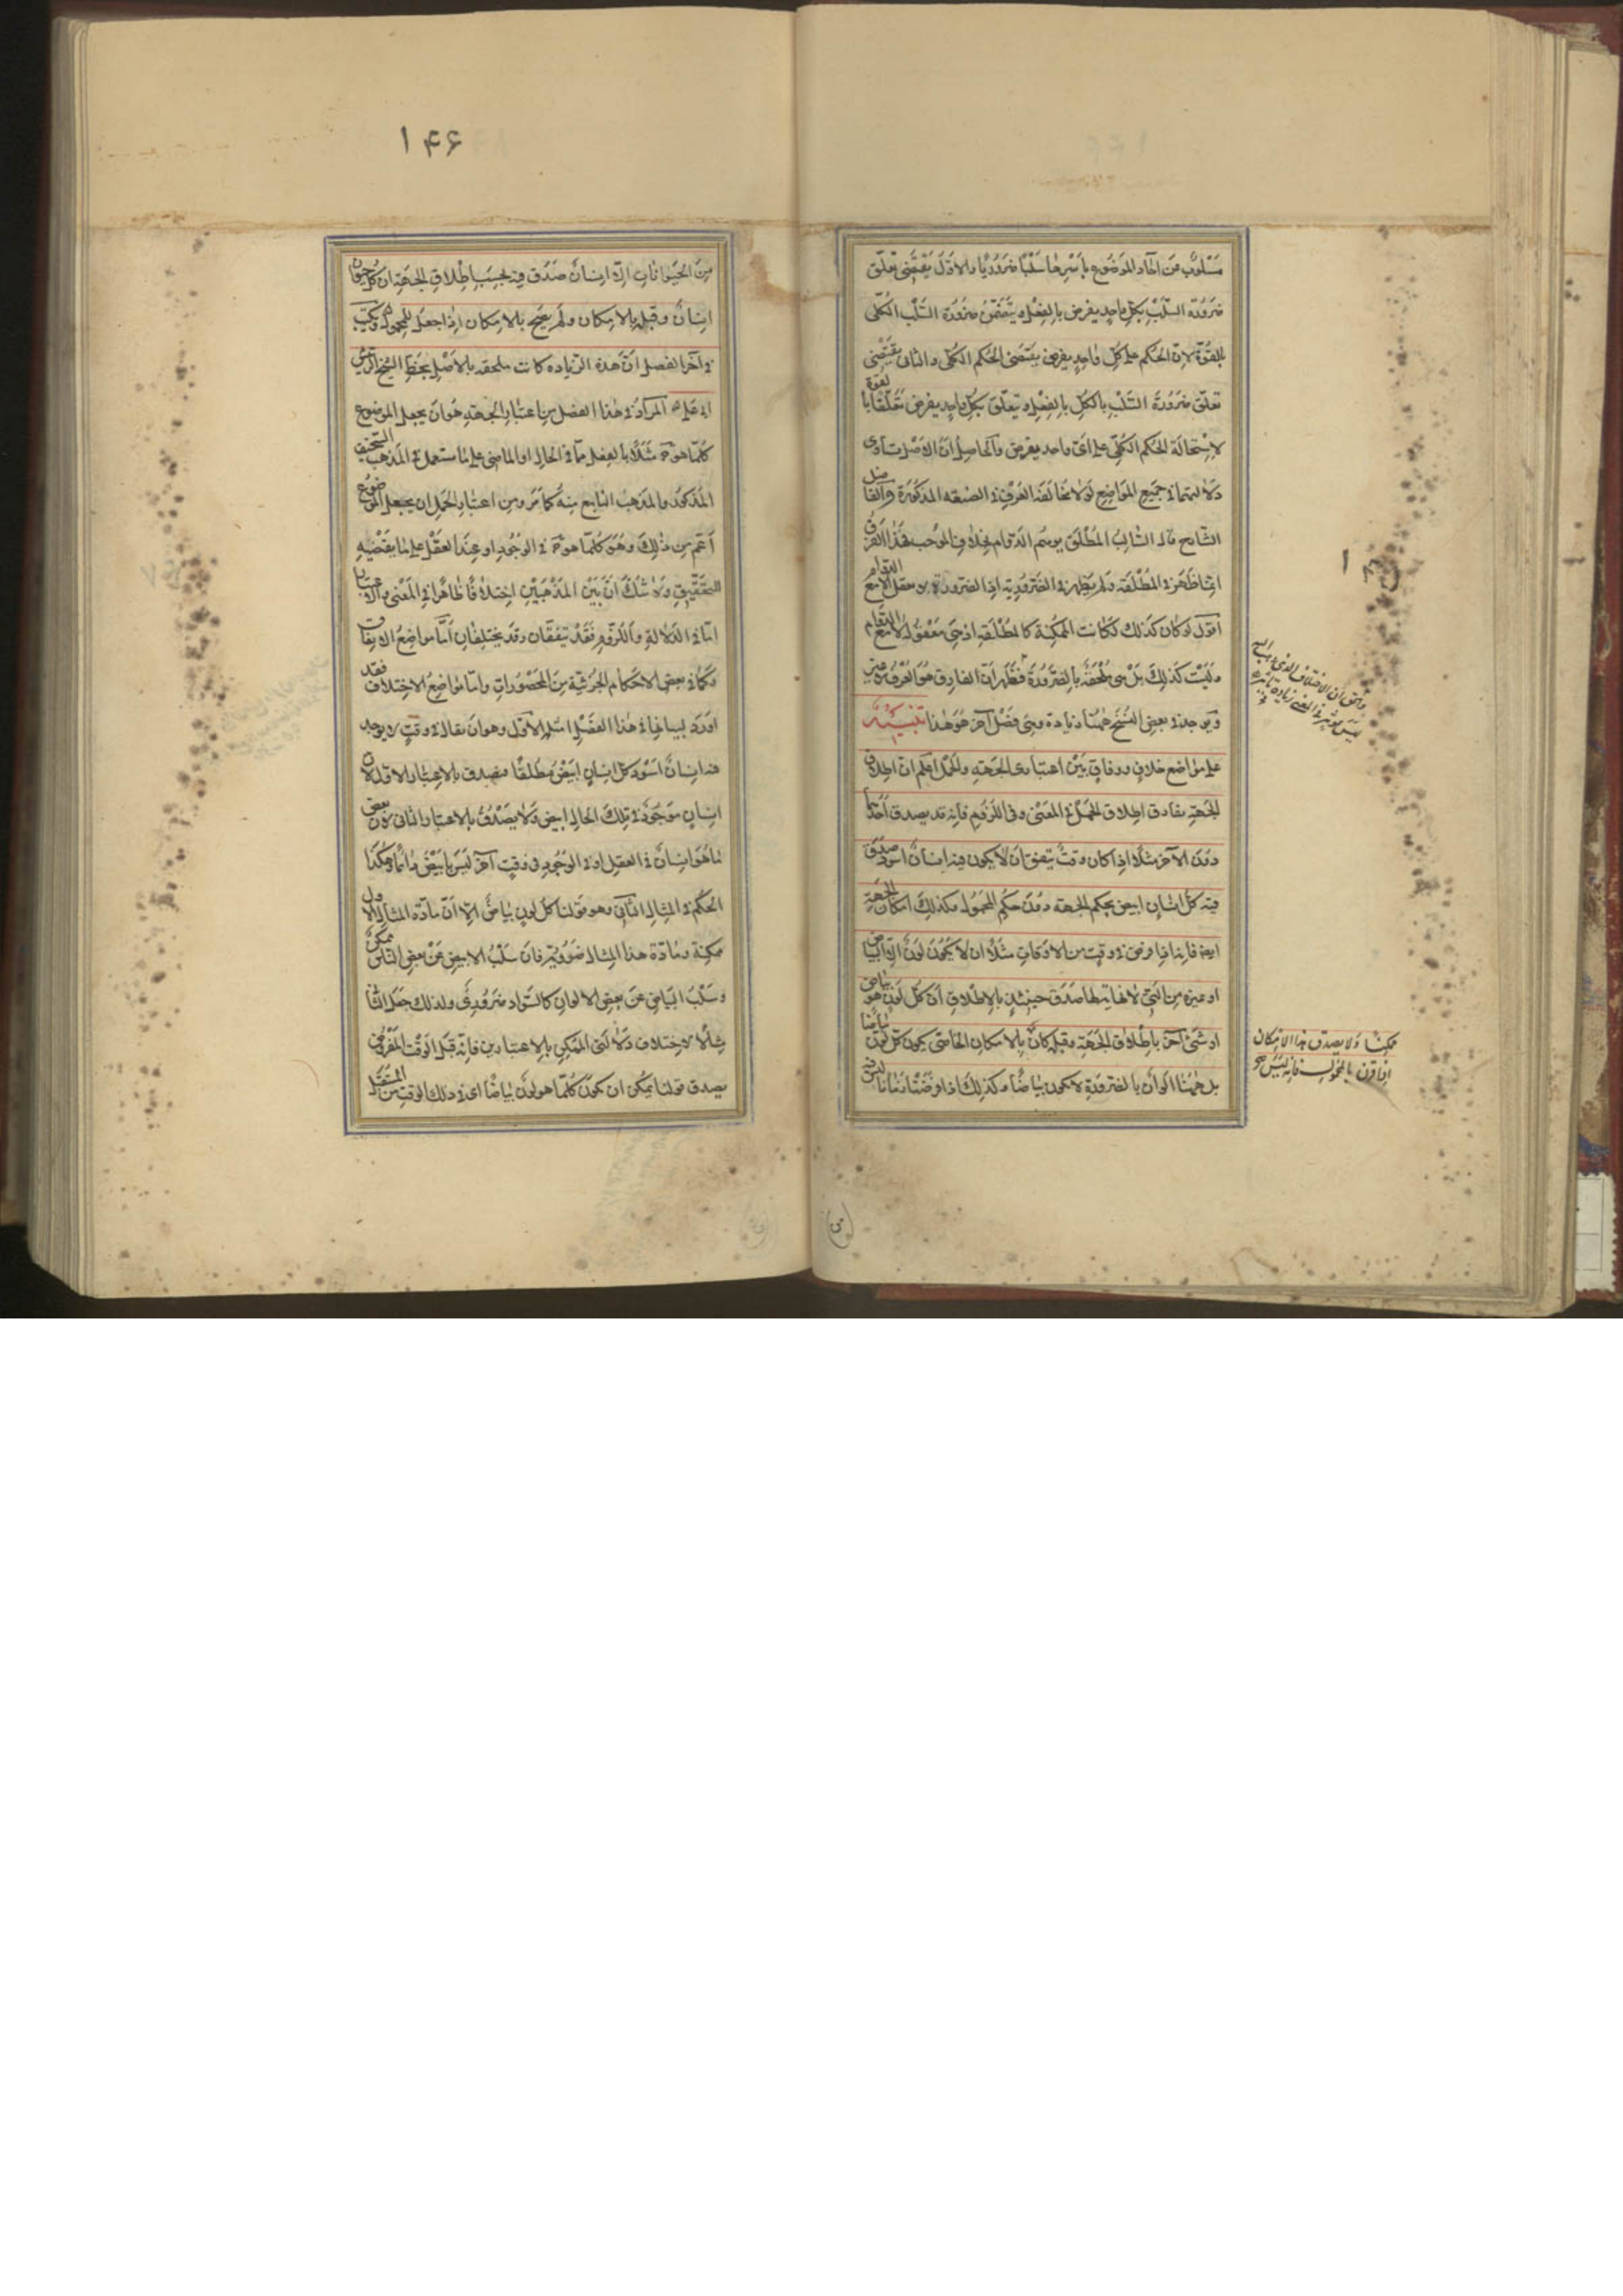 مسلوب من آحاد الموضوع بأسرها سلبا ضروريا والاول يقتضى تعلق
ضرورة السلب بكل واحد يفرض بالفعل ويتضمن ضرورة السلب الكلى
بالقوة لان الحكم على كل واحد يفرض يقتضى الحكم الكلى والثانى يقتضى
تعلق ضرورة السلب بالكل بالفعل ويتعلق بكل واحد يفرض تعلقا بالقوة
لاستحالة الحكم الكلى على اى واحد يفرض والحاصل ان الاصل تساوى
دلالتهما فى جميع المواضع لولا مخالفة العرف فى الصيغة المذكورة والفاضل
الشارح قال السالب المطلق يوهم الدوام بخلاف الموجب فهذا الفرق
انما ظهر فى المطلقة ولم يظهر فى الضرورية اذ الضرورة لا تعقل الا مع الدوام
اقول لو كان كذلك لكانت الممكنة كالمطلقة اذ هى معقولة لا مع الدوام
وليست كذلك بل هى ملحقة بالضرورة فظهر ان الفارق هو العرف لا غير
ويوجد فى بعض النسخ ههنا زيادة وهى فصل آخر هو هذا تنبيه
على مواضع خلاف ووفاق بين اعتبارى الجهة والحمل اعلم ان اطلاق
الجهة يفارق اطلاق الحمل فى المعنى وفى اللزوم فانه قد يصدق احدهما
دون الآخر مثلا اذا كان وقت يتفق ان لا يكون فيه انسان اسود صدق
فيه كل انسان ابيض بحكم الجهة دون حكم المحمول وكذلك امكان الجهة
ايضا فانه اذا فرض فى وقت من الاوقات مثلا ان لا يكون لون الا البياض
او غيره من التى لا نهاية لها صدق حينئذ بالاطلاق ان كل لون هو بياض
او شىء آخر باطلاق الجهة وقبله كان بالامكان الخاص يكون كل لون بياضا
بل ههنا الوان بالضرورة لا يكون بياضا وكذلك اذا فرضنا زمانا ليس فيه
ممكنا ولا يصدق هذا الامكان
اذا قرن بالمحمول فانه ليس
١۴۶
من الحيوانات الا انسان صدق فيه بحسب اطلاق الجهة ان كل حيوان
انسان وقبله بالامكان ولم يصح بالامكان اذا جعل للمحمول وكتب
فى آخر الفصل ان هذه الزيادة كانت ملحقة بالاصل بخط الشيخ الرئيس
المراد فى هذا الفصل من اعتبار الجهة هو ان يجعل الموضوع
كلما هو ج مثلا بالفعل مما فى الحال او الماضى على ما استعمل فى المذهب السخيف
المذكور والمذهب التابع منه كما مر ومن اعتبار الحمل ان يجعل الموضوع
اعم من ذلك وهو كلما هو ج فى الوجود او عند العقل على ما يقتضيه
التحقيق ولا شك ان بين المذهبين اختلافا ظاهرا فى المعنى والاعتبار
اما فى الدلالة واللزوم فقد يتفقان وقد يختلفان اما مواضع الاتفاق
فكما فى بعض الاحكام الجزئية من المحصورات واما مواضع الاختلاف فقد
اورد لبيانها فى هذا الفصل امثلة الاول وهو ان يقال فى وقت لا يوجد
فيه انسان اسود كل انسان ابيض مطلقا فيصدق بالاعتبار الاول لان
انسان موجود فى تلك الحال ابيض ولا يصدق بالاعتبار الثانى لان بعض
ما هو انسان فى العقل او فى الوجود فى وقت آخر ليس بابيض دائما وهكذا
الحكم فى المثال الثانى وهو قولنا كل لون بياض الا ان مادة المثال الاول
ممكنة ومادة هذا المثال ضرورية فان سلب الابيض عن بعض الناس ممكن
وسلب البياض عن بعض الالوان كالسواد ضرورى ولذلك جعل الثانى
مثالا لاختلاف دلالتى الممكن بالاعتبارين فانه قبل الوقت المفروض
يصدق قولنا يمكن ان يكون كلما هو لون بياضا اى فى ذلك الوقت من المستقبل